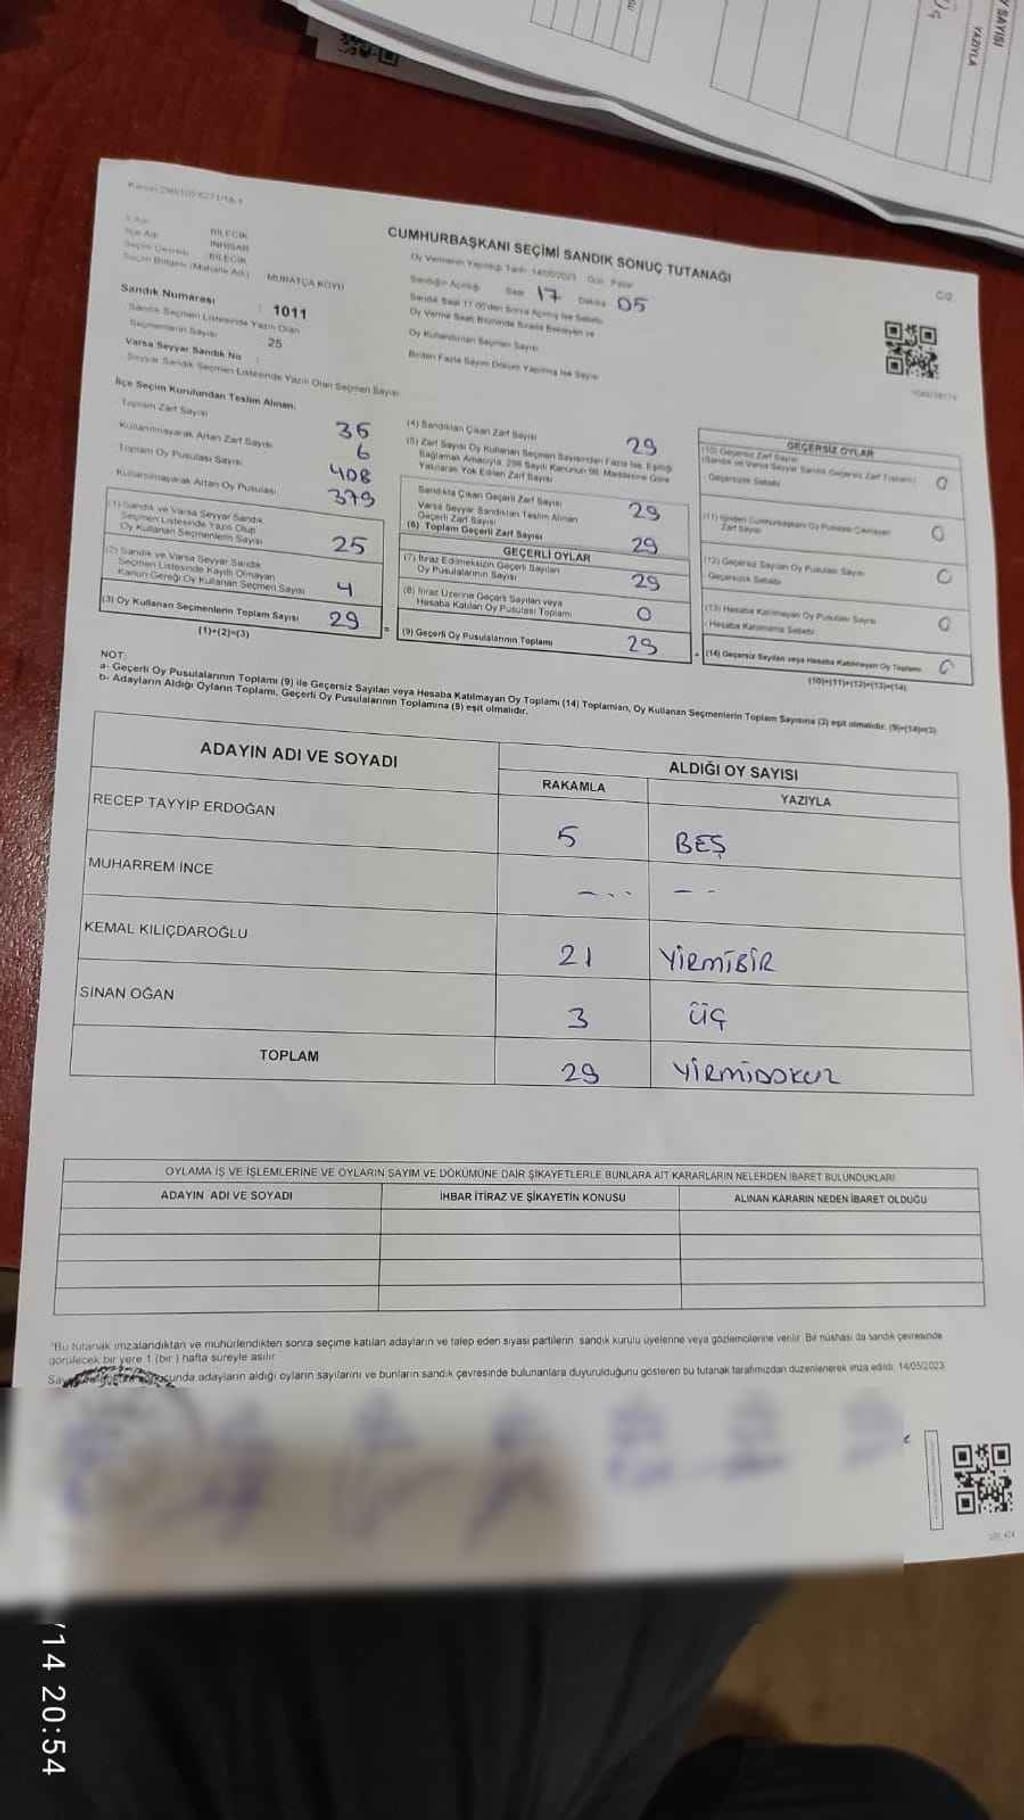 Y SAYISI
YAZIYLA
CUMHURBAŞKANI SEÇİMİ SANDIK SONUÇ TUTANAĞI
İlçe Adı
BİLECİK
İNHİSAR
BİLECİK
MURATÇA KÖYÜ
Sandık Numarası : 1011
Sandık Seçmen Listesinde Yazılı Olan
Seçmenlerin Sayısı 25
Varsa Seyyar Sandık No :
Seyyar Sandık Seçmen Listesinde Yazılı Olan Seçmen Sayısı
Oy Vermenin Yapıldığı Tarih 14/05/2023 Gün Pazar
Sandığın Açıldığı Saat 17 Dakika 05
Oy Kullandırılan Seçmen Sayısı
Birden Fazla Sayım Döküm Yapılmış İse Sayısı
İlçe Seçim Kurulundan Teslim Alınan;
Toplam Zarf Sayısı 35
Kullanılmayarak Artan Zarf Sayısı 6
Toplam Oy Pusulası Sayısı 408
Kullanılmayarak Artan Oy Pusulası 379
(1) Sandık ve Varsa Seyyar Sandık
Seçmen Listesinde Yazılı Olup
Oy Kullanan Seçmenlerin Sayısı 25
(2) Sandık ve Varsa Seyyar Sandık
Seçmen Listesinde Kayıtlı Olmayan
Kanun Gereği Oy Kullanan Seçmen Sayısı 4
(3) Oy Kullanan Seçmenlerin Toplam Sayısı 29
(1)+(2)=(3)
(4) Sandıktan Çıkan Zarf Sayısı 29
(5) Zarf Sayısı Oy Kullanan Seçmen Sayısından Fazla İse, Eşitliği
Sağlamak Amacıyla, 298 Sayılı Kanunun 98. Maddesine Göre
Yakılarak Yok Edilen Zarf Sayısı
Sandıkta Çıkan Geçerli Zarf Sayısı 29
Varsa Seyyar Sandıktan Teslim Alınan
Geçerli Zarf Sayısı
(6) Toplam Geçerli Zarf Sayısı 29
GEÇERLİ OYLAR
(7) İtiraz Edilmeksizin Geçerli Sayılan
Oy Pusulalarının Sayısı 29
(8) İtiraz Üzerine Geçerli Sayılan veya
Hesaba Katılan Oy Pusulası Toplamı 0
(9) Geçerli Oy Pusulalarının Toplamı 29
GEÇERSİZ OYLAR
(10) Geçersiz Zarf Sayısı
(Sandık ve Varsa Seyyar Sandık Geçersiz Zarf Toplamı) 0
Geçersizlik Sebebi
(11) İçinden Cumhurbaşkanı Oy Pusulası Çıkmayan
Zarf Sayısı 0
(12) Geçersiz Sayılan Oy Pusulası Sayısı 0
Geçersizlik Sebebi
(13) Hesaba Katılmayan Oy Pusulası Sayısı 0
Hesaba Katılmama Sebebi
(14) Geçersiz Sayılan veya Hesaba Katılmayan Oy Toplamı 0
(10)+(11)+(12)+(13)=(14)
NOT:
a- Geçerli Oy Pusulalarının Toplamı (9) ile Geçersiz Sayılan veya Hesaba Katılmayan Oy Toplamı (14) Toplamları, Oy Kullanan Seçmenlerin Toplam Sayısına (3) eşit olmalıdır. (9)+(14)=(3)
b- Adayların Aldığı Oyların Toplamı, Geçerli Oy Pusulalarının Toplamına (9) eşit olmalıdır.
ADAYIN ADI VE SOYADI
ALDIĞI OY SAYISI
RAKAMLA YAZIYLA
RECEP TAYYİP ERDOĞAN 5 BEŞ
MUHARREM İNCE
KEMAL KILIÇDAROĞLU 21 YİRMİBİR
SİNAN OĞAN 3 ÜÇ
TOPLAM 29 YİRMİDOKUZ
OYLAMA İŞ VE İŞLEMLERİNE VE OYLARIN SAYIM VE DÖKÜMÜNE DAİR ŞİKAYETLERLE BUNLARA AİT KARARLARIN NELERDEN İBARET BULUNDUKLARI
ADAYIN ADI VE SOYADI
İHBAR İTİRAZ VE ŞİKAYETİN KONUSU
ALINAN KARARIN NEDEN İBARET OLDUĞU
*Bu tutanak imzalandıktan ve mühürlendikten sonra seçime katılan adayların ve talep eden siyasi partilerin sandık kurulu üyelerine veya gözlemcilerine verilir. Bir nüshası da sandık çevresinde
görülecek bir yere 1 (bir ) hafta süreyle asılır.
adayların aldığı oyların sayılarını ve bunların sandık çevresinde bulunanlara duyurulduğunu gösteren bu tutanak tarafımızdan düzenlenerek imza edildi. 14/05/2023
/14 20:54